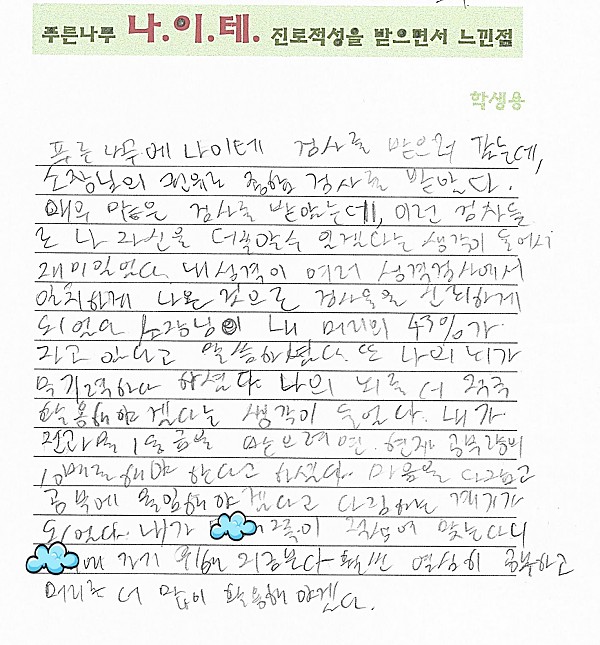 푸른나무 나.이.테. 진로적성을 받으면서 느낀점
학생용
푸른 나무에 나이테 검사를 받으러 갔는데,
소장님의 권유로 종합 검사를 받았다.
꽤의 많은 검사를 받았는데, 이런 검차들
로 나 자신을 더 잘알수 있겠다는 생각이 들어서
재미있었다. 내 성격이 여러 성격검사에서
일치하게 나온 것으로 검사율을 신뢰하게
되었다 소장님이 내 머리의 43%가
자고 있다고 말씀하셨다. 또 나의 뇌가
무기력하다 하셨다. 나의 뇌를 더 적극
활용해야 겠다는 생각이 들었다. 내가
전과목 1등급을 받으려면 현재 공부량의
10배를 해야 한다고 하셨다. 마음을 다잡고
공부에 몰입해야 겠다고 다짐하는 계기가
되었다. 내가 쪽이 적성에 맞는다니
에 가기 위해 지금보다 훨씬 열심히 공부하고
머리를 더 많이 활용해 야겠다.